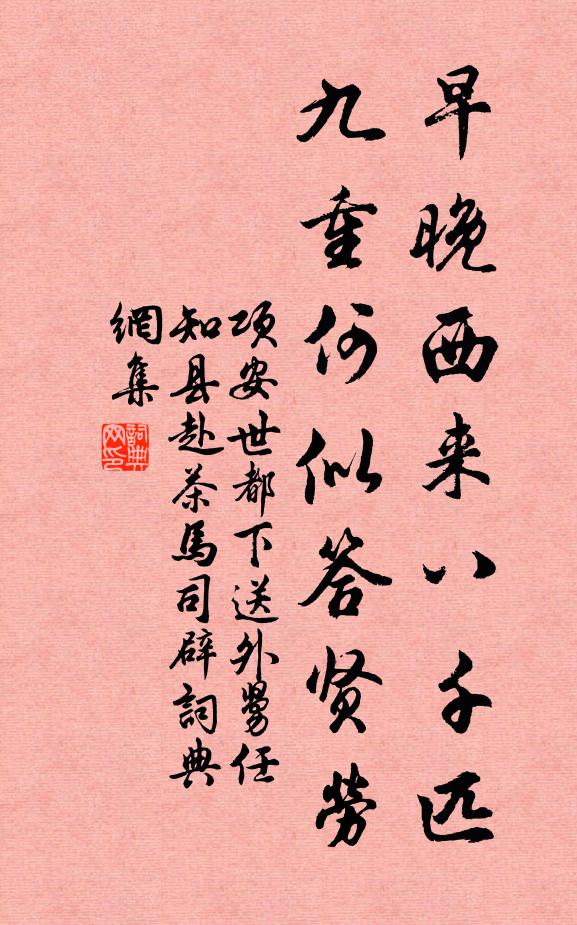 早晚西来八千匹
九重何似答贤劳
项安世都下送外舅任
知县赴茶馬司辟詞典
網集
詞典網印